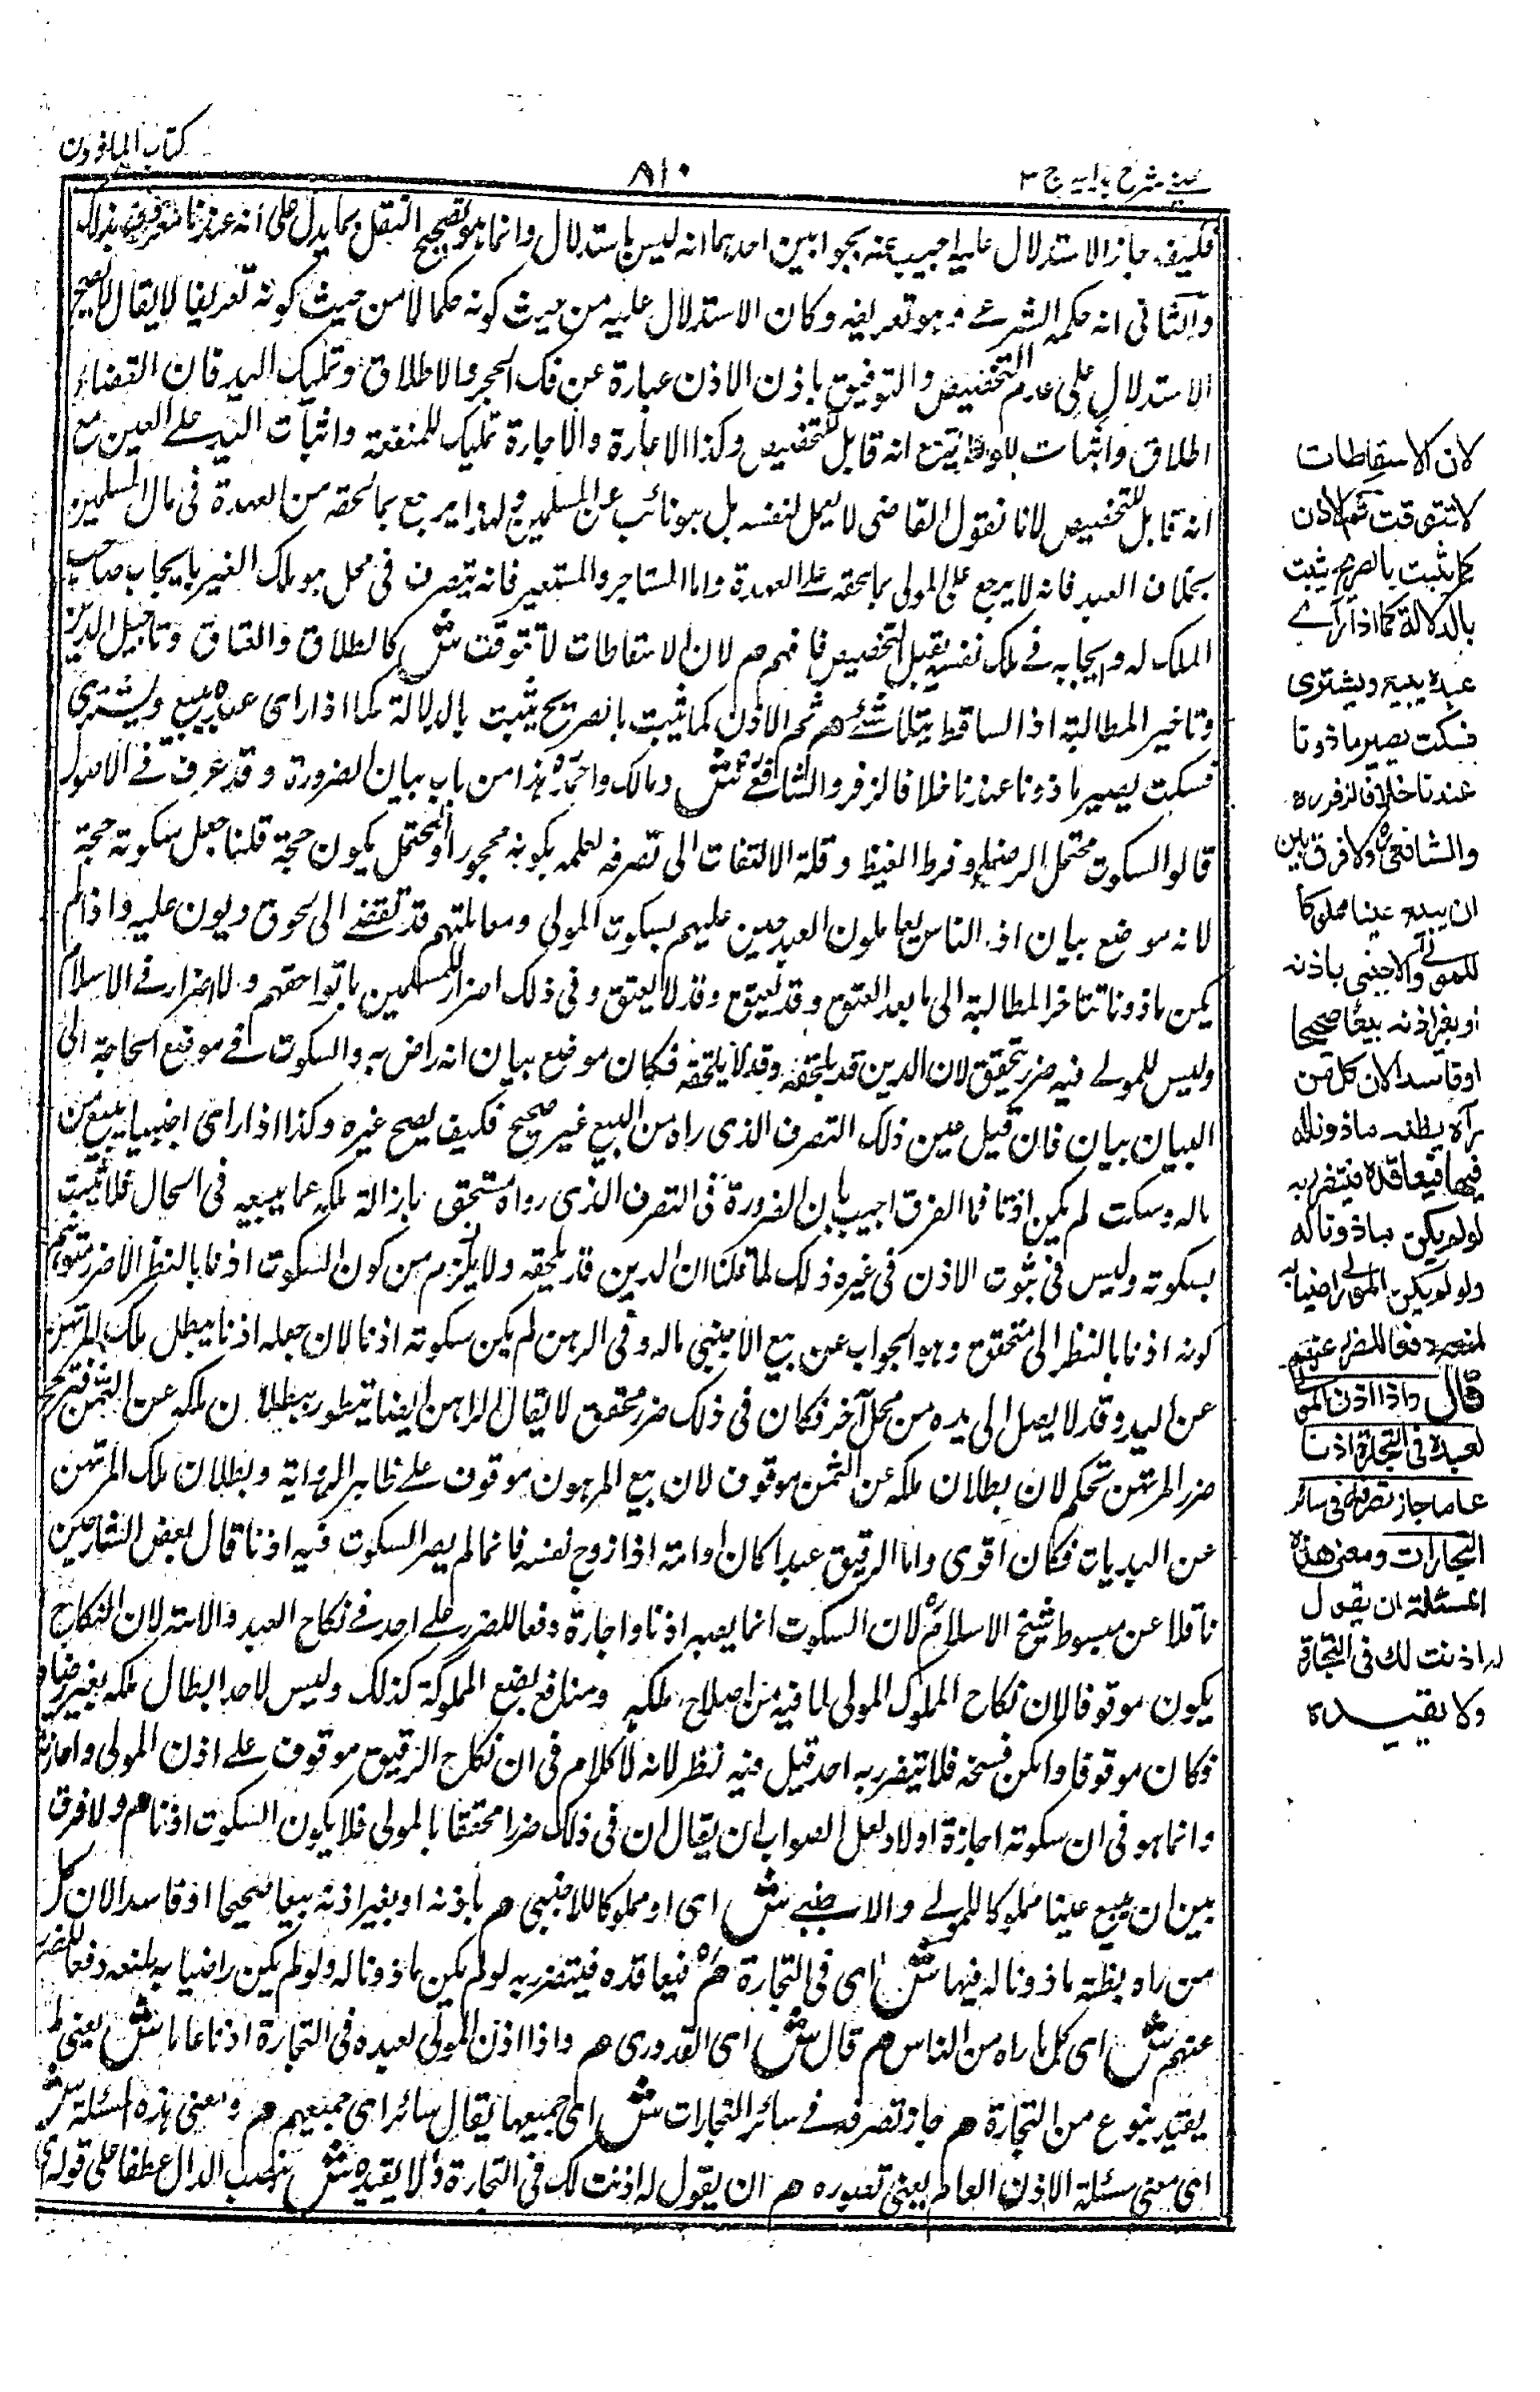 عینی شرح ہدایہ ج ۳
٨١٠
كتاب الماذون
فكيف جاز الاستدلال عليه اجيب عنه بجوابين احدهما انه ليس باستدلال وانما هو تصحيح النقل بما يدل على انه عندنا معرف بذلك
والثانى انه حكمه الشرعے وهو تعريفه وكان الاستدلال عليه من حيث كونه حكما لا من حيث كونه تعريفا لا يقال لا يصح
الاستدلال على عدم التخصيص والتوقيت بان الاذن عبارة عن فك الحجر والاطلاق وتمليك اليد فان القضاء
اطلاق واثبات للولاية مع انه قابل للتخصيص وكذا الاعارة والاجارة تمليك للمنفعة واثبات اليد علے العين مع
انه قابل للتخصيص لانا نقول القاضى لا يعمل لنفسه بل هو نائب عن المسلمين ولهذا يرجع بما لحقه من العهدة فى مال المسلمين
بخلاف العبد فانه لا يرجع على المولى بما لحقه علے العهدة واما المستاجر والمستعير فانه يتصرف فى محل هو ملك الغير بايجاب صاحب
الملك له وايجابه فے ملك نفسه يقبل التخصيص فافهم هم لان الاسقاطات لا تتوقت ش كالطلاق والعتاق وتاجيل الدين
وتاخير المطالبة اذا الساقط يتلاشے هم ثم الاذن كما يثبت بالصريح يثبت بالدلالة كما اذا راى عبده يبيع ويشترى
فسكت يصير ماذونا عندنا خلافا لزفر والشافعے ش ومالك واحمد هذا من باب بيان الضرورة وقد عرف فے الاصول
قالوا السكوت محتمل الرضاء وفرط الغيظ وقلة الالتفات الى تصرفه لعلمه بكونه محجورا والمحتمل يكون حجة قلنا جعل سكوته حجة
لانه موضع بيان اذ الناس يعاملون العبد حين عليهم بسكوت المولى ومعاملتهم قد تفضے الى لحوق ديون عليه واذا لم
يكن ماذونا تتاخر المطالبة الى ما بعد العتق وقد يعتق وقد لا يعتق وفى ذلك اضرار للمسلمين باتواء حقهم ولا اضرار فے الاسلام
وليس للمولے فيه ضرر تحقق لان الدين قد يلحقه وقد لا يلحقه فكان موضع بيان انه راض به والسكوت فے موضع الحاجة الى
البيان بيان فان قيل عين ذلك التصرف الذى راه من البيع غير صحيح فكيف يصح غيره وكذا اذا راى اجنبيا يبيع من
ماله وسكت لم يكن اذنا فما الفرق اجيب بان الضرورة فى التصرف الذى رواه متحقق بازالة ملكه عما يبيعه فى الحال فلا يثبت
بسكوته وليس فى ثبوت الاذن فى غيره ذلك لما قلنا ان الدين قد يلحقه ولا يلزم من كون السكوت اذنا بالنظر الى ضرر متوهم
كونه اذنا بالنظر الى متحقق وهو الجواب عن بيع الاجنبى ماله وفى الرهن لم يكن سكوته اذنا لان جعله اذنا يبطل ملك المرتهن
عن اليد وقد لا يصل الى يده من محل آخر فكان فى ذلك ضرر محقق لا يقال الراهن ايضا يتضرر ببطلان ملكه عن الثمن فترجح
ضرر المرتهن تحكم لان بطلان ملكه عن الثمن موقوف لان بيع المرهون موقوف علے ظاهر الرواية وبطلان ملك المرتهن
عن اليد بات فكان اقوى واما الرقيق عبدا كان او امته اذا زوج نفسه فانما لم يصر السكوت فيه اذنا قال بعض الشارحين
ناقلا عن مبسوط شيخ الاسلام لان السكوت انما يصير اذنا واجازة دفعا للضرر علے احد فے نكاح العبد والامة لان النكاح
يكون موقوفا لان نكاح المملوك المولى لما فيه من اصلاح ملكه ومنافع بضع المملوكة كذلك وليس لاحد ابطال ملكه بغير رضاه
فكان موقوفا وامكن فسخه فلا يتضرر به احد قيل وفيه نظر لانه لا كلام فى ان نكاح الرقيق موقوف علے اذن المولى واجازته
وانما هو فى ان سكوته اجازة اولا ولعل الصواب ان يقال ان فى ذلك ضررا محققا بالمولى فلا يكون السكوت اذنا هم ولا فرق
بين ان يبيع عينا مملوكا للمولے والاجنبے ش اى او مملوكا للاجنبى هم باذنه او بغير اذنه بيعا صحيحا او فاسدا لان كل
من راه يظنه ماذونا له فيها ش اى فى التجارة هم فيعاقده فيتضرر به لو لم يكن ماذونا له ولو لم يكن راضيا به لمنعه دفعا للضرر
عنهم ش اى كل ما راه من الناس هم قال ش اى القدورى هم واذا اذن المولى لعبده فى التجارة اذنا عاما ش يعنى لم
يقيد بنوع من التجارة هم جاز تصرفه فے سائر التجارات ش اى جميعها يقال سائر اى جميعهم هم ومعنى هذه المسئلة ش
اى معنى مسئلة الاذن العام يعنى تصوره هم ان يقول له اذنت لك فى التجارة ولا يقيده ش بنصب الدال عطفا على قوله ان
لان الاسقاطات
لا تتوقت ثم الاذن
كما يثبت بالصريح يثبت
بالدلالة كما اذا رأے
عبده يبيع ويشترى
فسكت يصير ماذونا
عندنا خلافا لزفر رہ
والشافعى رہ ولا فرق بين
ان يبيع عينا مملوكا
للمولى والاجنبى باذنه
او بغير اذنه بيعا صحيحا
او فاسدا لان كل من
رآه يظنه ماذونا له
فيها فيعاقده فيتضرر به
لو لم يكن ماذونا له
ولو لم يكن المولى راضيا به
لمنعه دفعا للضرر عنهم
قال واذا اذن المولى
لعبده فى التجارة اذنا
عاما جاز تصرفه فى سائر
التجارات ومعنى هذه
المسئلة ان يقول
له اذنت لك فى التجارة
ولا يقيده